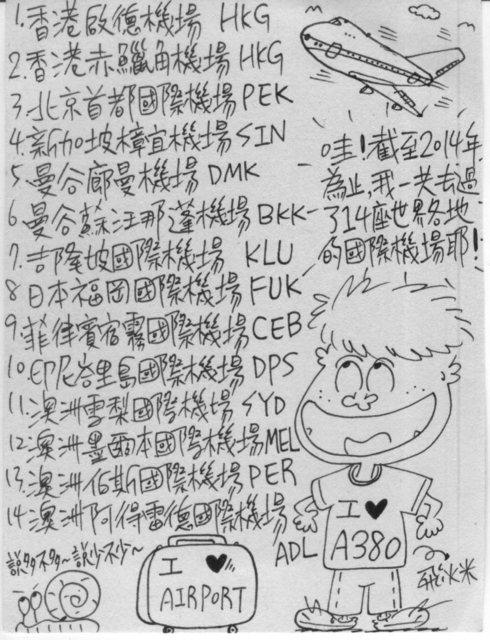 1.香港啟德機場 HKG
2.香港赤鱲角機場 HKG
3.北京首都國際機場 PEK
4.新加坡樟宜機場 SIN
5.曼谷廊曼機場 DMK
6.曼谷蘇汪那蓬機場 BKK
7.吉隆坡國際機場 KLU
8.日本福岡國際機場 FUK
9.菲律賓宿霧國際機場 CEB
10.印尼峇里島國際機場 DPS
11.澳洲雪梨國際機場 SYD
12.澳洲墨爾本國際機場 MEL
13.澳洲伯斯國際機場 PER
14.澳洲阿得雷德國際機場
ADL
哇!截至2014年
為止,我一共去過
了14座世界各地
的國際機場耶!
說多不多~說少不少~
I ♥
AIRPORT
I ♥
A380
飛米